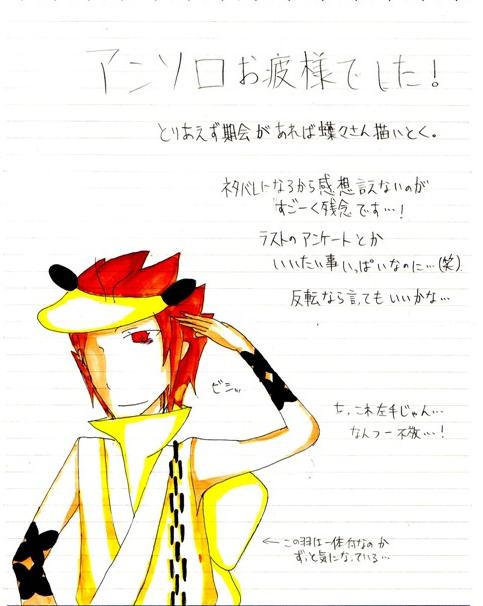 アンソロお疲れ様でした！
とりあえず期会があれば蝶々さん描いとく。
ネタバレになるから感想言えないのが
すごーく残念です…！
ラストのアンケートとか
いいたい事いっぱいなのに…(笑)
反転なら言ってもいいかな…
ビシッ
も、これ左手じゃん…
なんつー不敬…！
← この羽は一体何なのか
ずっと気になっている…